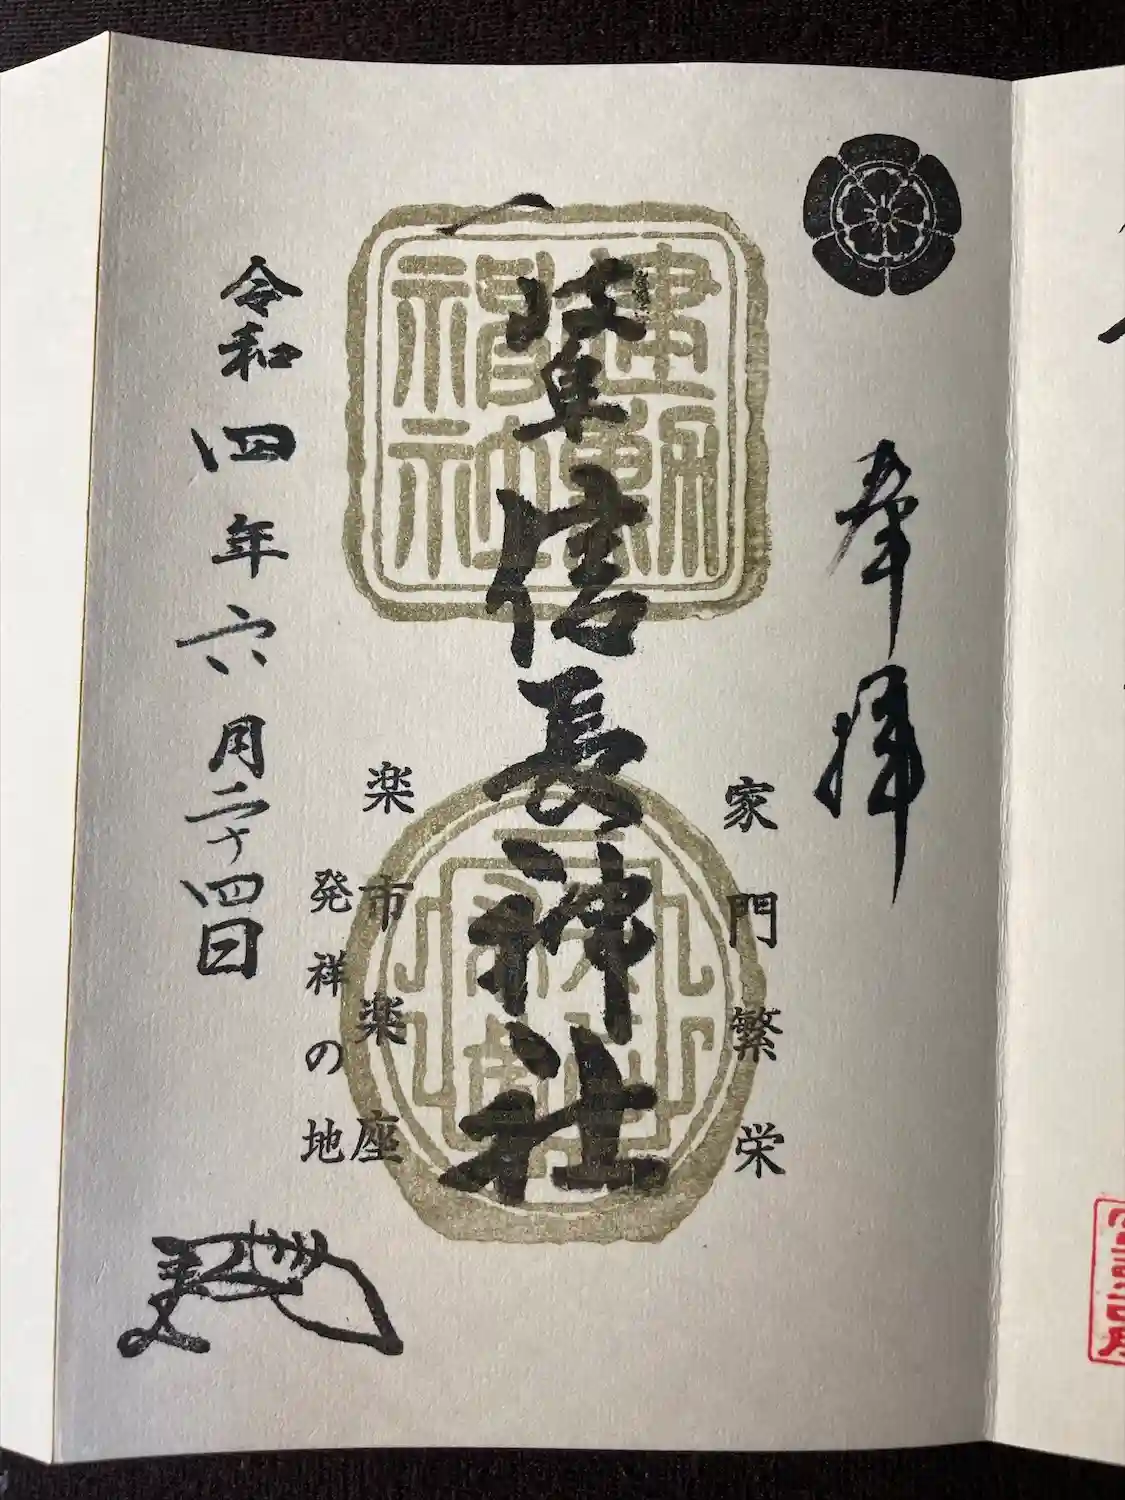 奉拝
家門繁栄
岐阜信長神社
建勲
神社
楽市楽座
発祥の地
令和四年六月二十四日